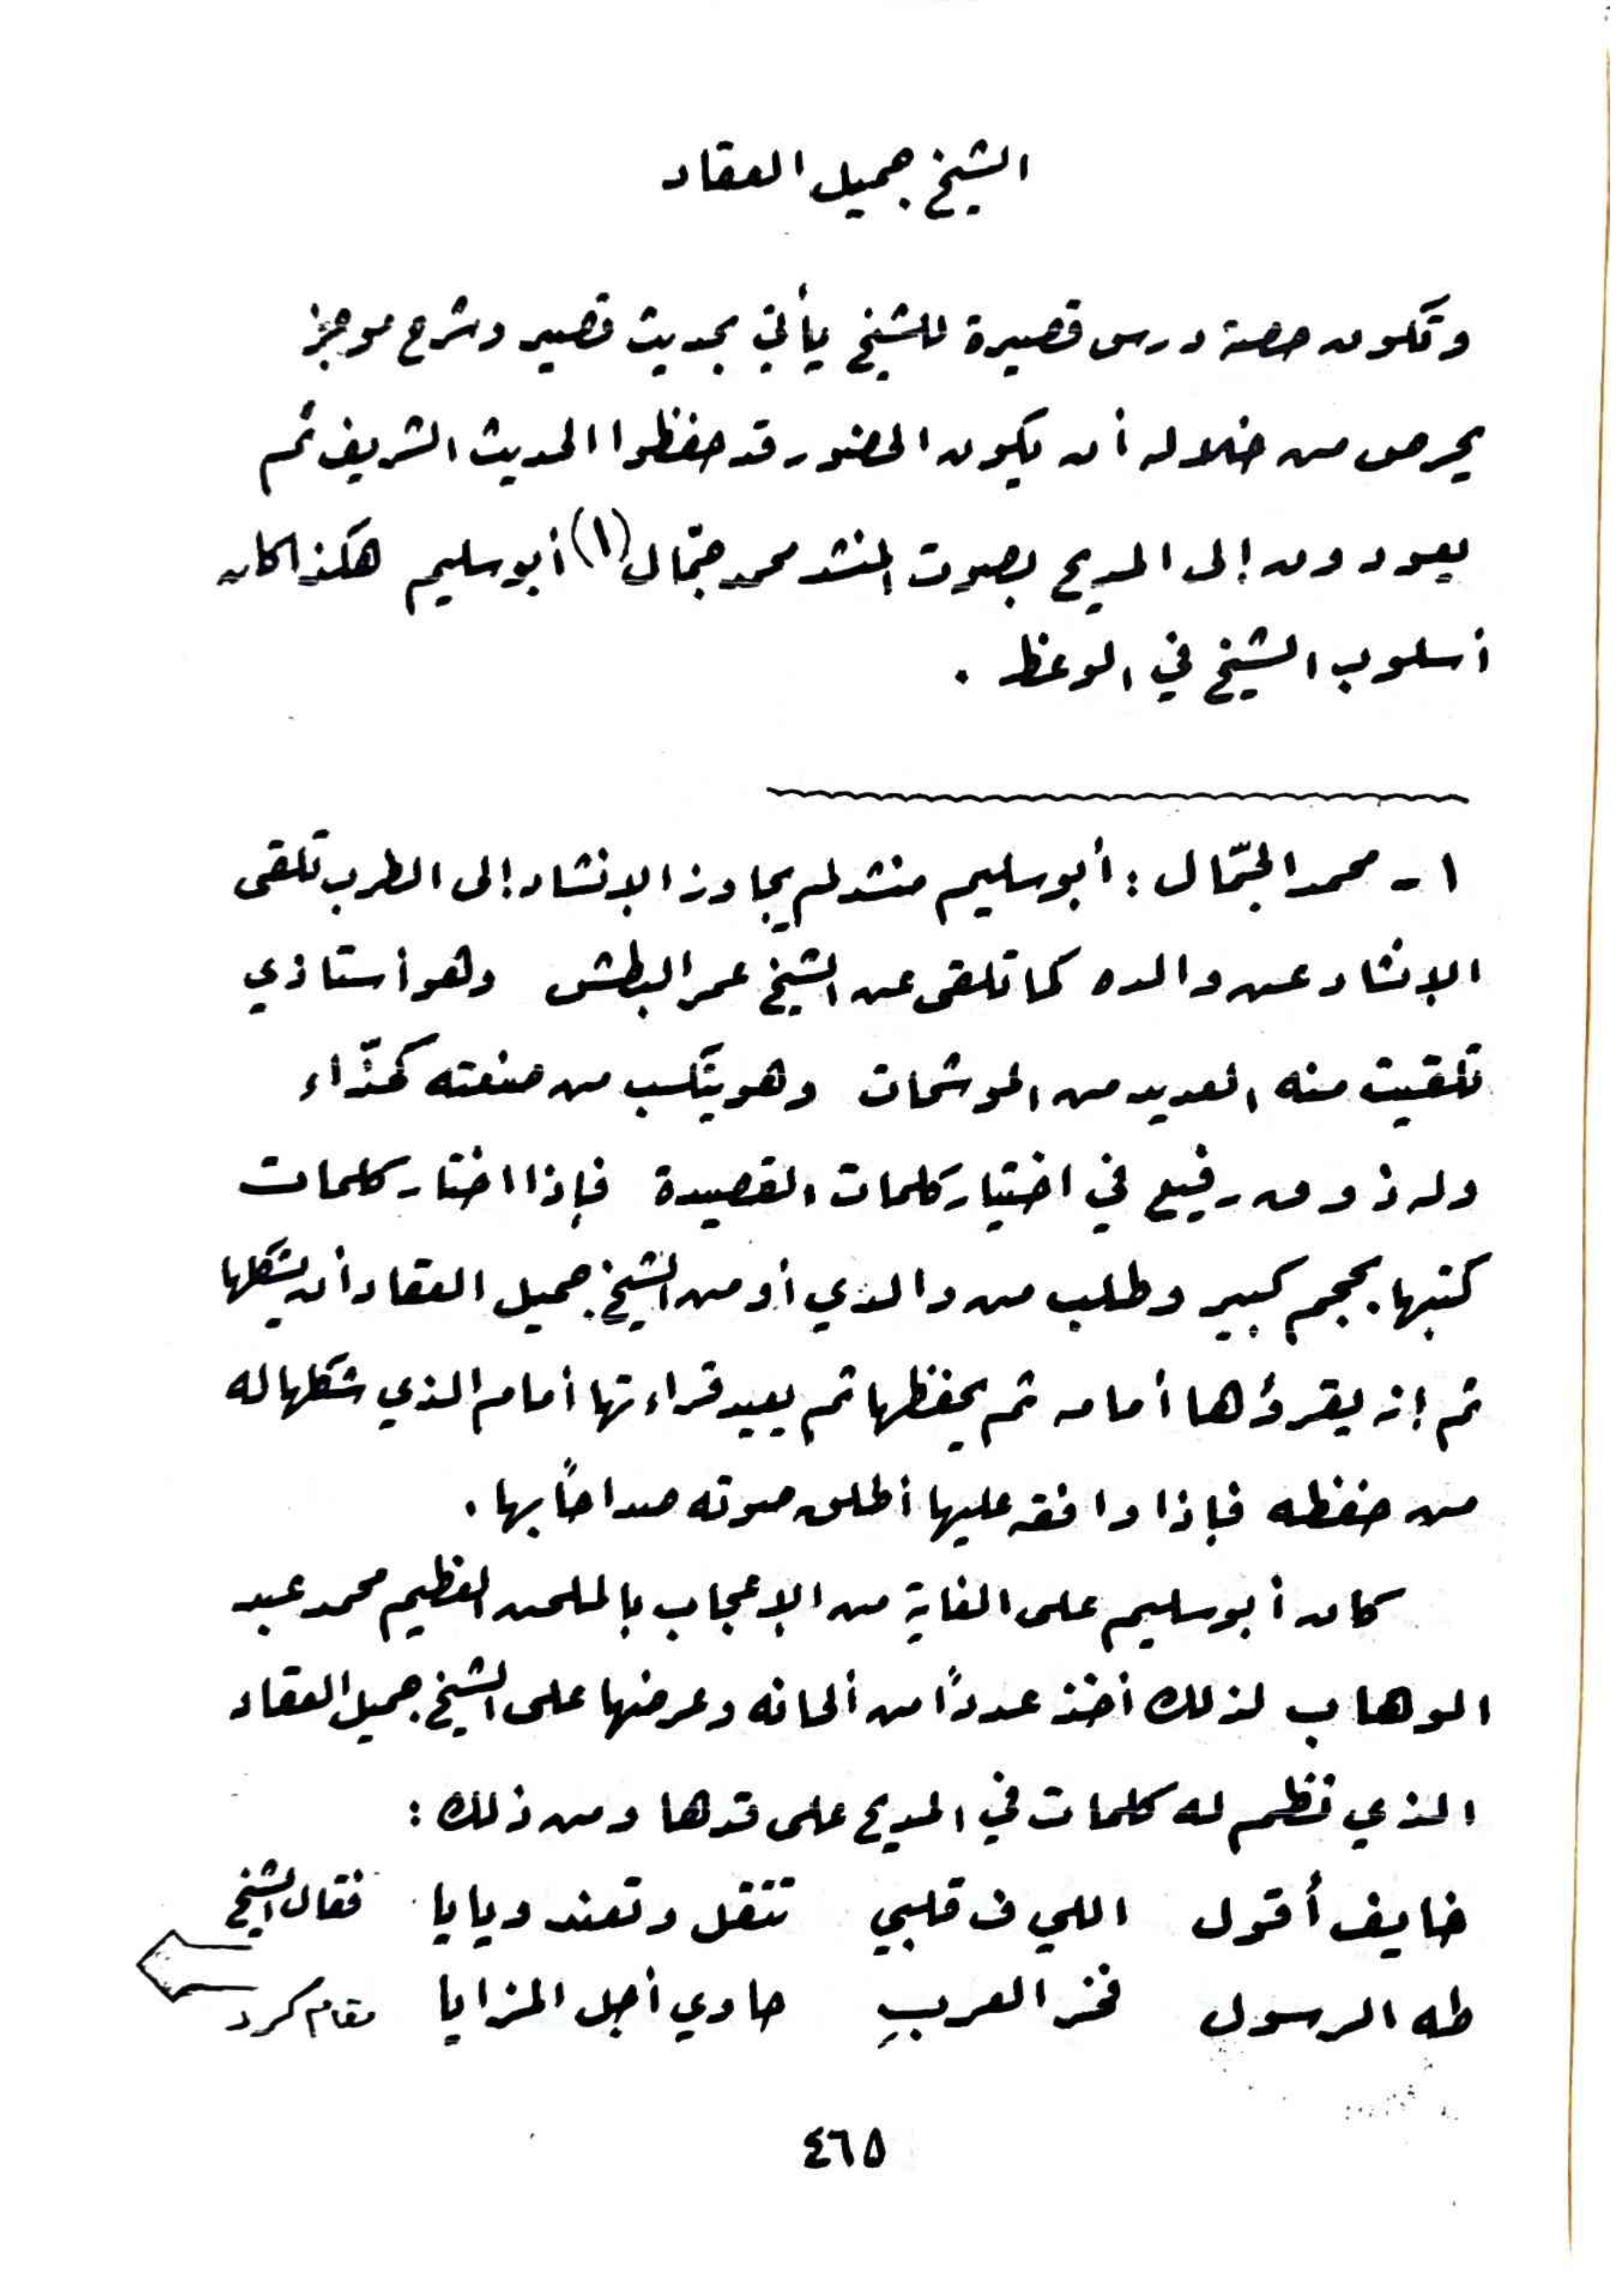 الشيخ جميل العقاد
وتكون حصة درس قصيرة للشيخ يأتي بحديث قصير وشرح موجز
يحرص من خلاله أن يكون الحضور قد حفظوا الحديث الشريف ثم
يعودون إلى المديح بصوت المنشد محمد جمّال (١) أبو سليم هكذا كان
أسلوب الشيخ في الوعظ .
١ - محمد الجمّال : أبو سليم منشد لم يجاوز الإنشاد إلى الطرب تلقى
الإنشاد عن والده كما تلقى عن الشيخ عمر البطش وهو أستاذي
تلقيت منه العديد من الموشحات وهو يتكسب من صنعته كحذّاء
وله ذوق رفيع في اختيار كلمات القصيدة فإذا اختار كلمات
كتبها بحجم كبير وطلب من والدي أو من الشيخ جميل العقاد أن يشكلها
ثم إنه يقرؤها أمامه ثم يحفظها ثم يعيد قراءتها أمام الذي شكلها له
من حفظه فإذا وافقه عليها أطلق صوته صداحاً بها .
كان أبو سليم على الغاية من الإعجاب بالملحن العظيم محمد عبد
الوهاب لذلك أخذ عدداً من ألحانه وعرضها على الشيخ جميل العقاد
الذي نظم له كلمات في المديح على قدها ومن ذلك :
خايف أقول اللي ف قلبي تتقل وتعند ويايا فقال الشيخ
طه الرسول فخر العربِ حاوي أجل المزايا مقام كرد
٤٦٥